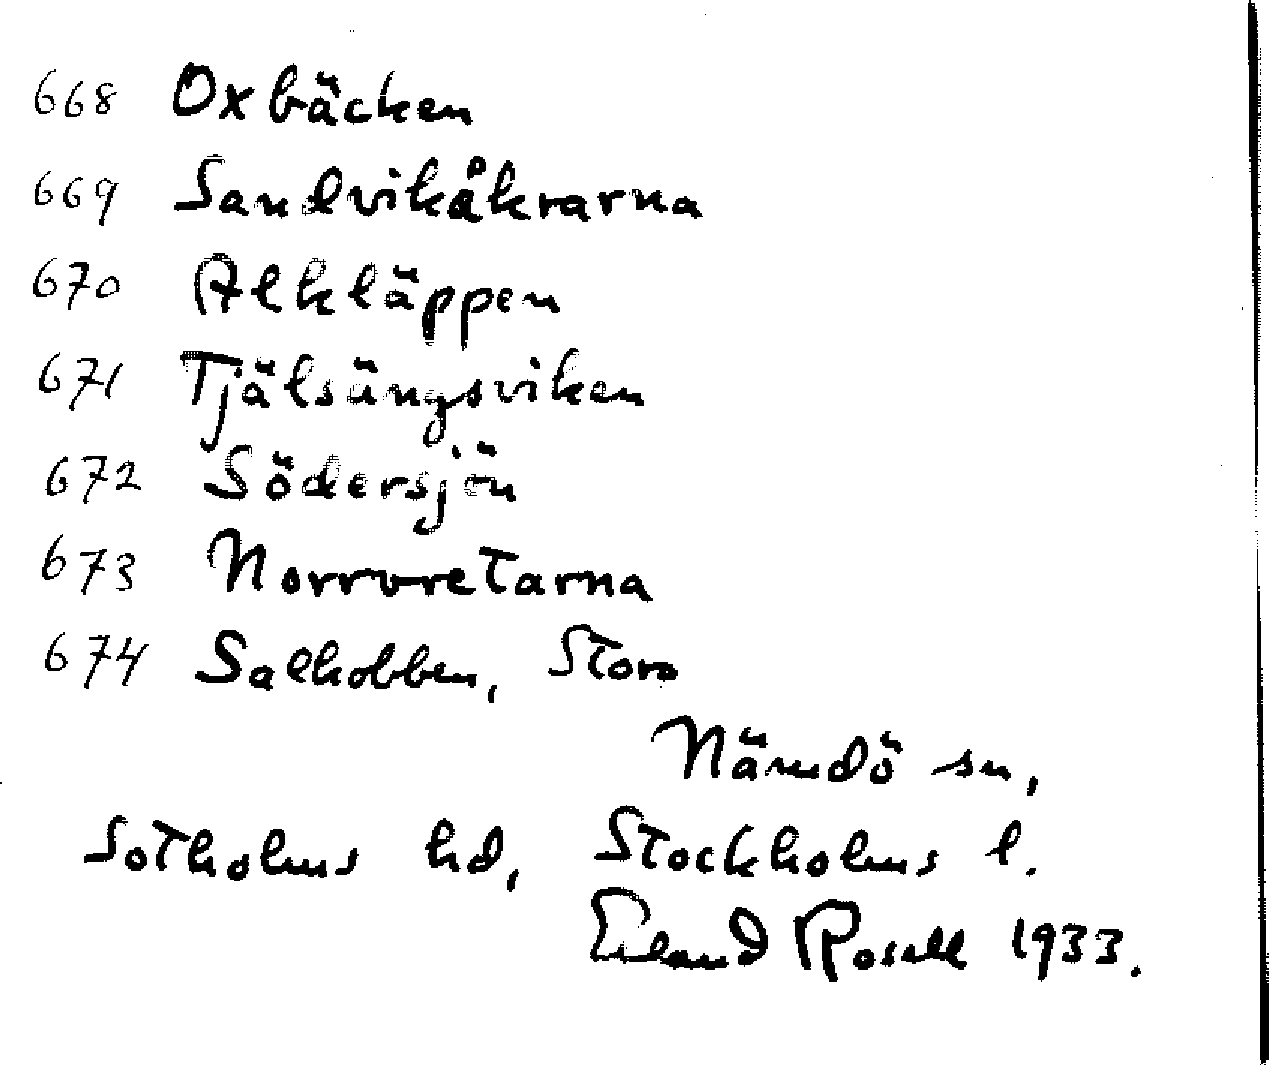 668 Oxbäcken
669 Sandvikåkrarna
670 Alkläppen
671 Tjälsängsviken
672 Södersjön
673 Norrvretarna
674 Salkobben, Stora
Nämdö sn,
Sotholms hd, Stockholms l.
Erland Rosell 1933.